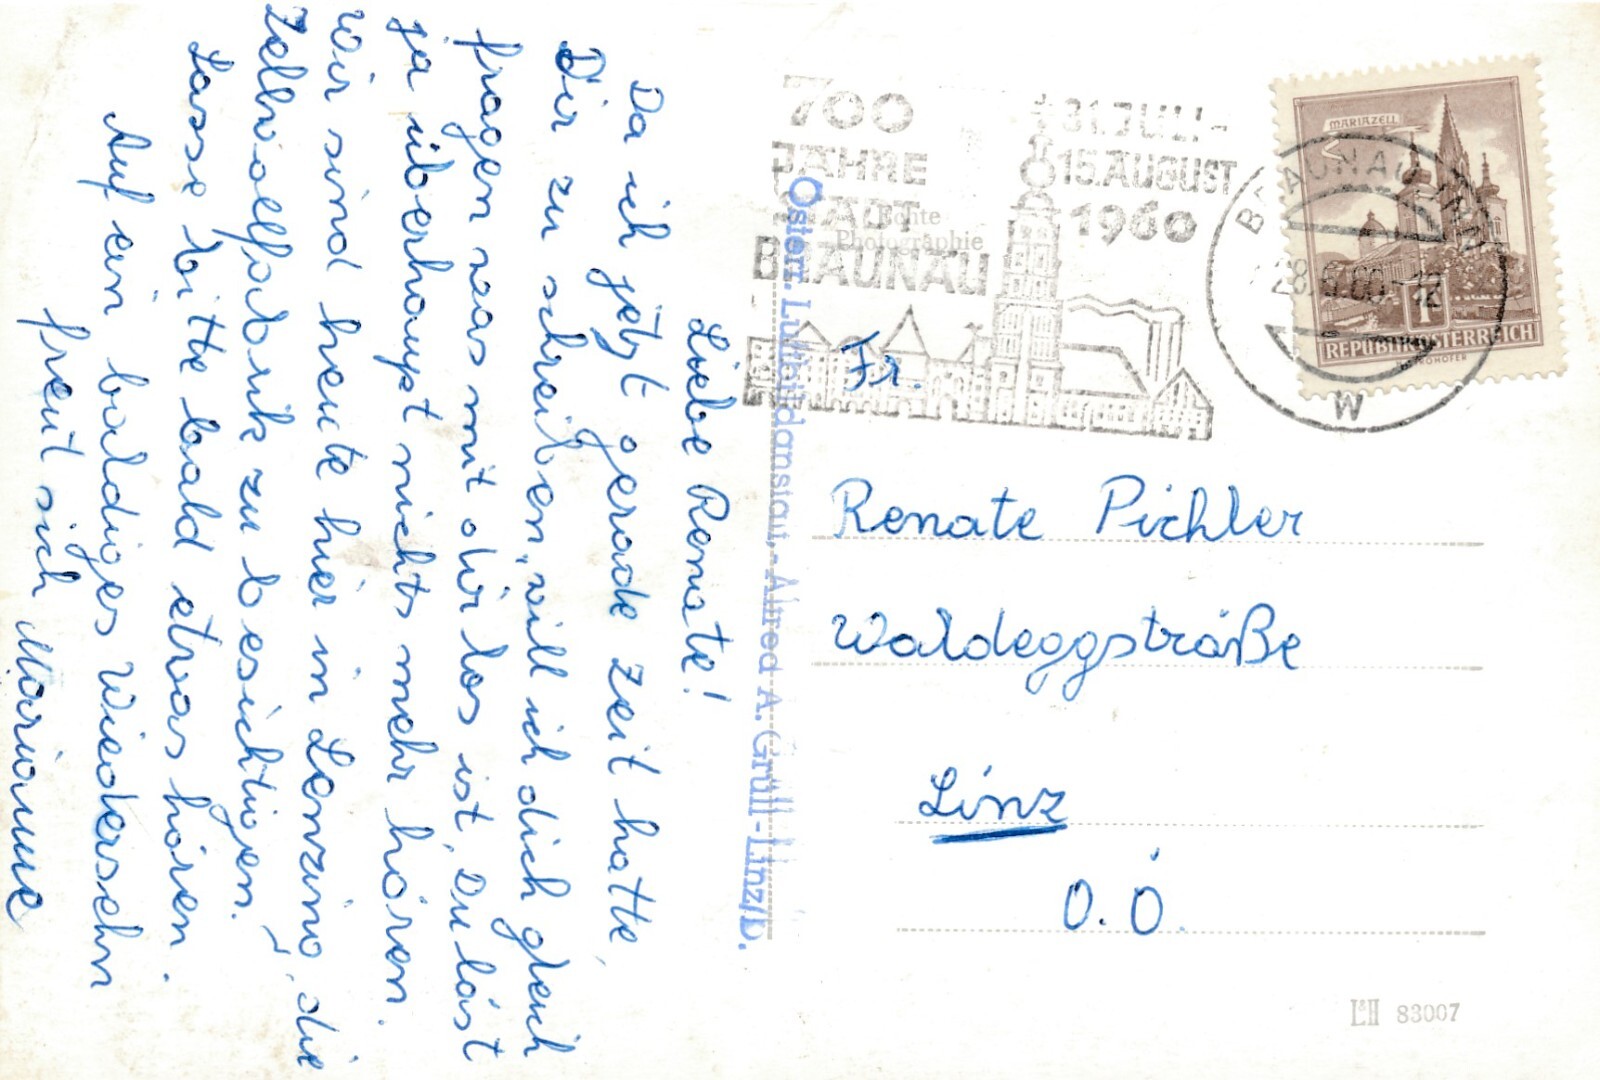 Liebe Renate!
Da ich jetzt gerade Zeit hatte,
Dir zu schreiben, will ich dich gleich
fragen was mit dir los ist, Du läst
ja überhaupt nichts mehr hören.
Wir sind heute hier in Lenzing, die
Zellwollfabrik zu besichtigen.
Lasse bitte bald etwas hören.
Auf ein baldiges Wiedersehn
freut sich Marianne
Österr. Luftbildanstalt,-Alfred A. Grüll-Linz/D.
Echte
Photographie
700
JAHRE
STADT
BRAUNAU
31. JULI-
15. AUGUST
1960
BRAUNAU INN
W
MARIAZELL
1
REPUBLIK ÖSTERREICH
Fr.
Renate Pichler
Waldeggstraße
Linz
O. Ö.
L&H 83007